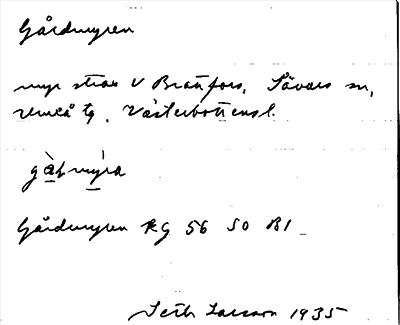 Gårdmyren
myr strax V Brattfors, Sävars sn,
Umeå tg, Västerbottensl.
Gårdmyren RG 56 SO B1
Seth Larsson 1935